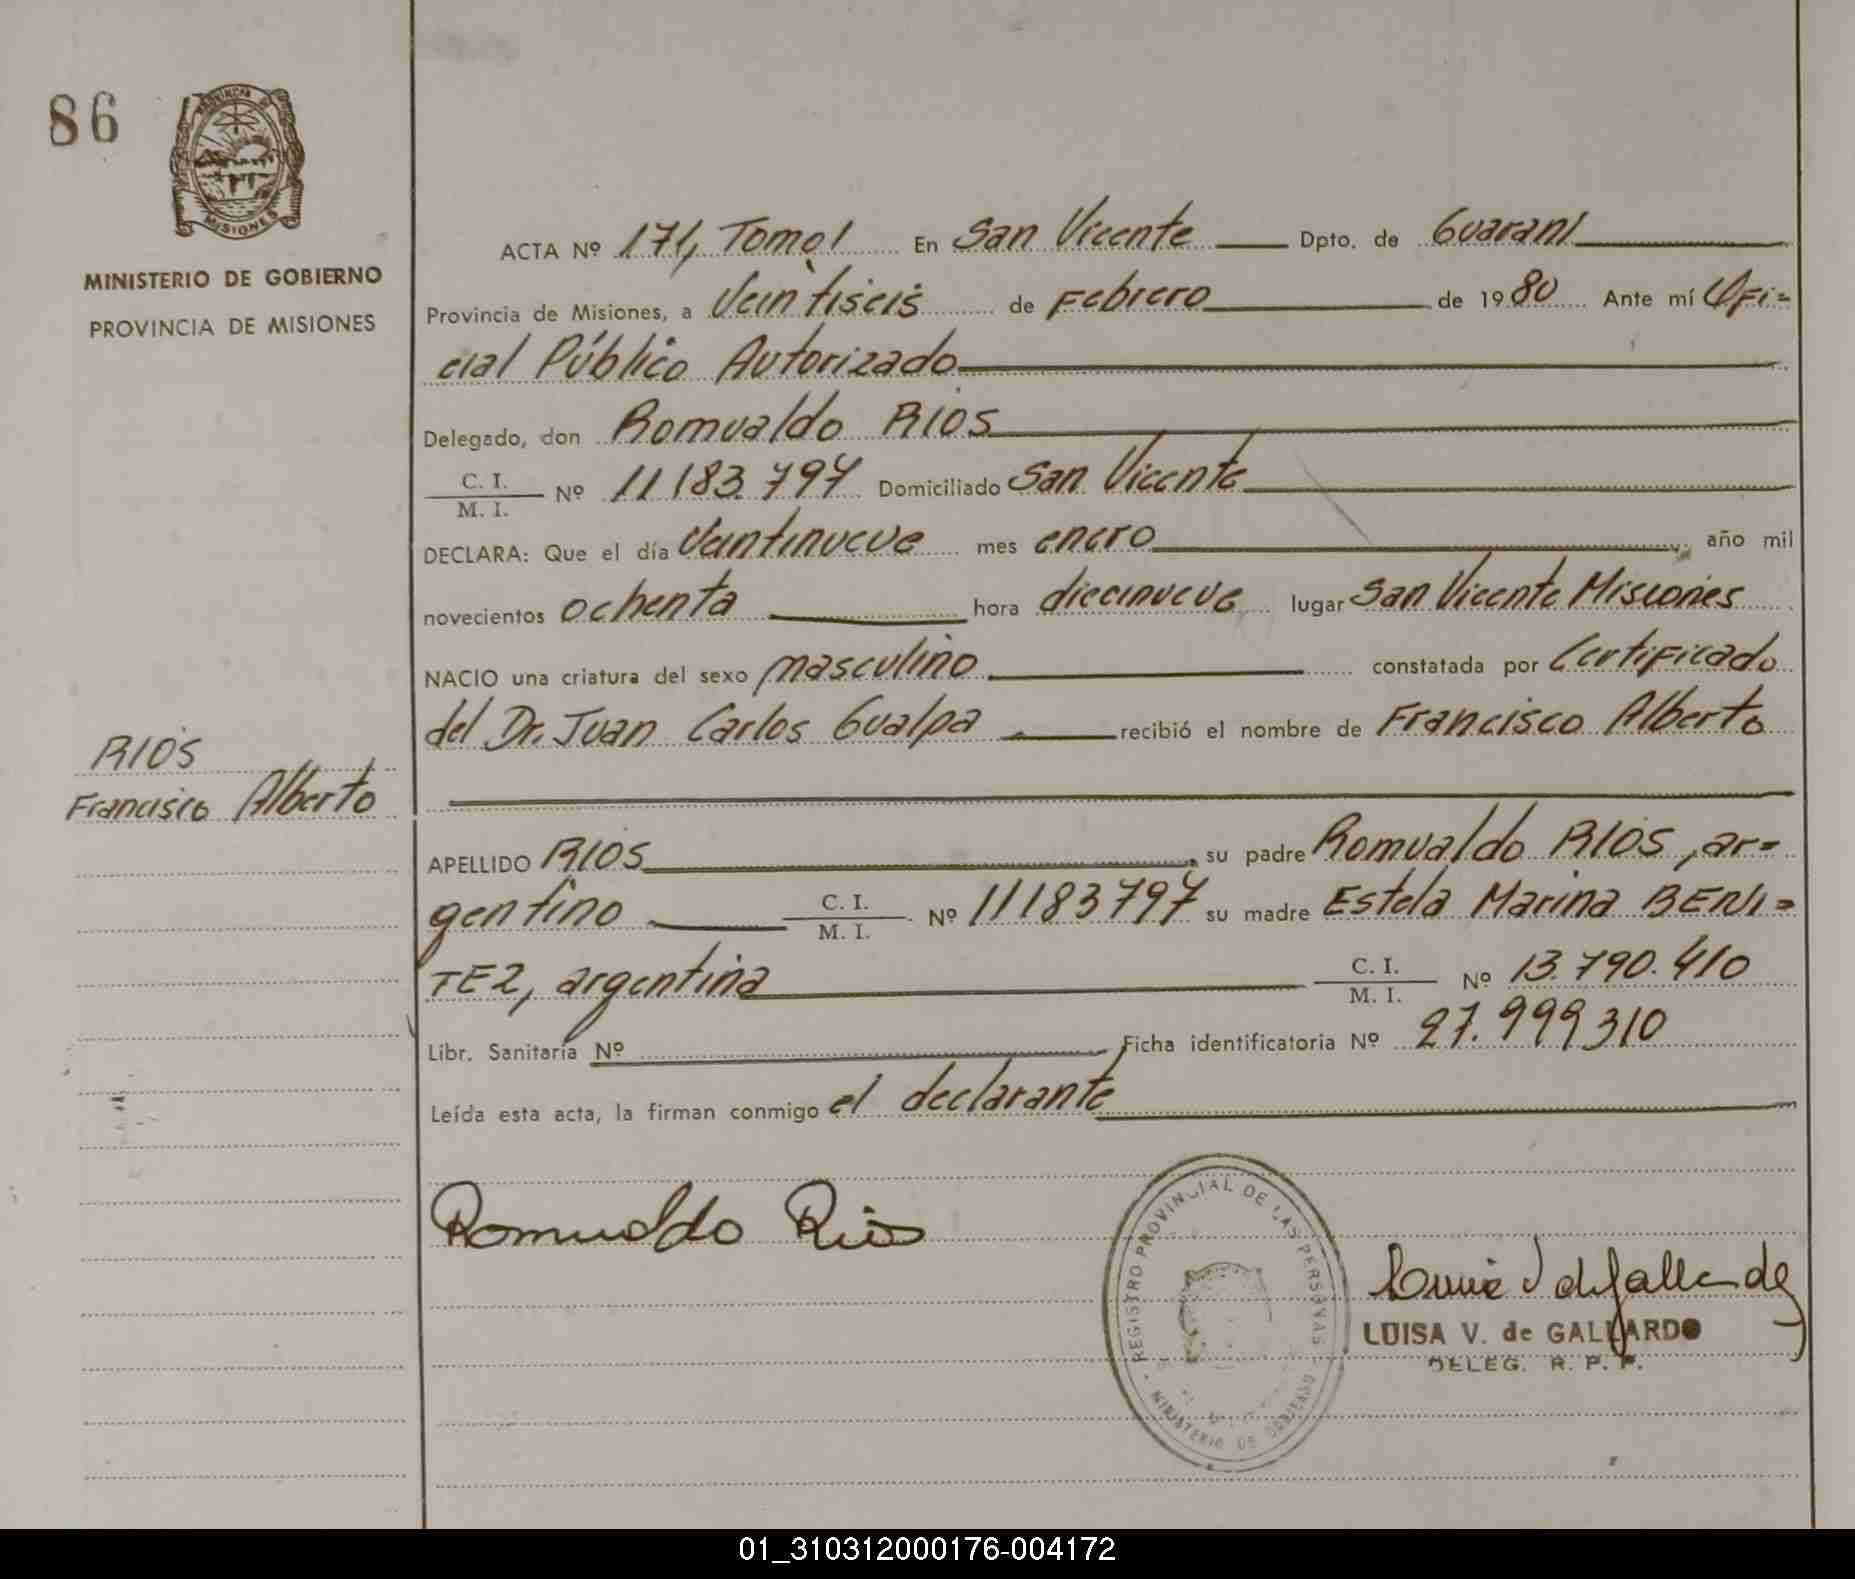 86
PROVINCIA DE
MISIONES
MINISTERIO DE GOBIERNO
PROVINCIA DE MISIONES
ACTA Nº 171, Tomo I En San Vicente Dpto. de Guaraní
Provincia de Misiones, a Veintiseis de Febrero de 1980 Ante mí Ofi=
cial Público Autorizado
Delegado, don Romualdo RIOS
C. I.
M. I. Nº 11183.797 Domiciliado San Vicente
DECLARA: Que el día Veintinueve mes enero año mil
novecientos ochenta hora diecinueve lugar San Vicente Misiones
NACIO una criatura del sexo masculino constatada por Certificado
del Dr. Juan Carlos Gualpa recibió el nombre de Francisco Alberto
RIOS
Francisco Alberto
APELLIDO RIOS su padre Romualdo RIOS, ar=
gentino C. I. M. I. Nº 11183797 su madre Estela Marina BENI=
TEZ, argentina C. I. M. I. Nº 13.790.410
Libr. Sanitaria Nº Ficha identificatoria Nº 27.999310
Leída esta acta, la firman conmigo el declarante
Romualdo Rios
REGISTRO PROVINCIAL DE LAS PERSONAS
MINISTERIO DE GOBIERNO
LUISA V. de GALLARDO
DELEG. R. P. P.
01_310312000176-004172